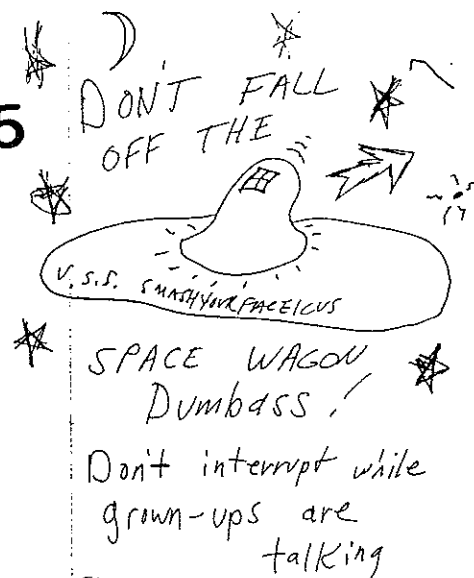 5
DON'T FALL
OFF THE
U.S.S. SMASHYOURFACEICUS
SPACE WAGON
Dumbass!
Don't interrupt while
grown-ups are
talking